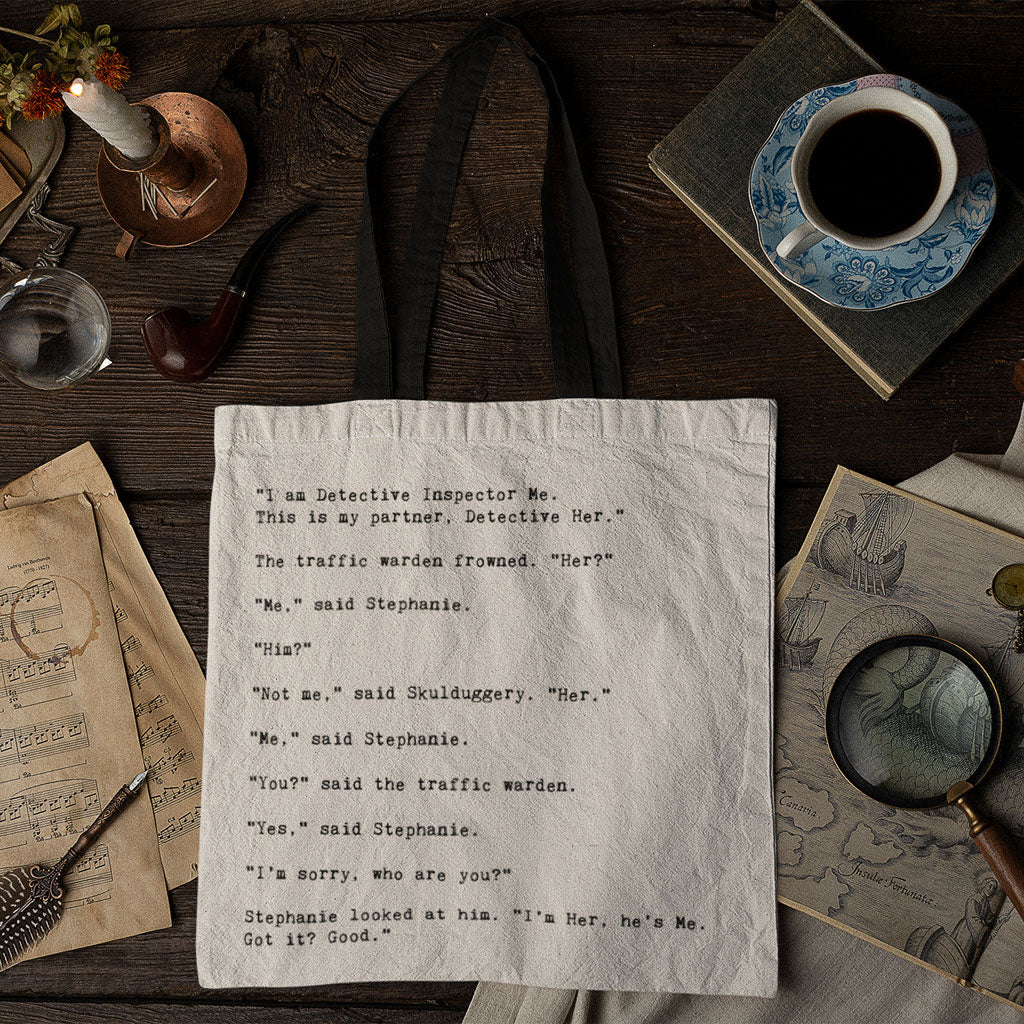 "I am Detective Inspector Me.
This is my partner, Detective Her."
The traffic warden frowned. "Her?"
"Me," said Stephanie.
"Him?"
"Not me," said Skulduggery. "Her."
"Me," said Stephanie.
"You?" said the traffic warden.
"Yes," said Stephanie.
"I'm sorry, who are you?"
Stephanie looked at him. "I'm Her, he's Me.
Got it? Good."
Ludwig van Beethoven
(1770 - 1827)
Canaria
Insulæ Fortunatæ